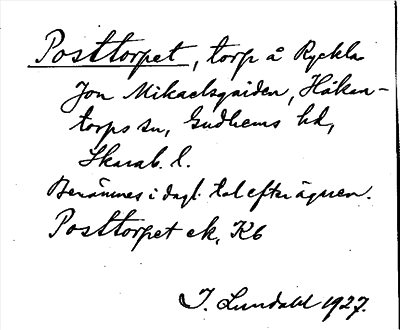 Posttorpet, torp å Ryckla
Jon Mikaelsgården, Håken-
torps sn, Gudhems hd,
Skarab. l.
Benämnes i dagl. tal efter ägaren.
Posttorpet ek, K6
I. Lundahl 1927.